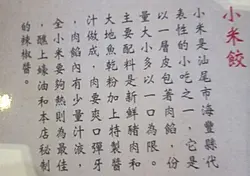 小米餃
小米是汕尾市海豐縣代
表性的小吃之一,它是
以一層皮包著肉餡,份
量大小多以一口為限。
主要配料是新鮮豬肉和
大地魚乾粉加上特製醬
汁做成,肉要爽口彈牙
,肉餡內有少量汁液,
全小米要夠熱則為最佳
,醮上蠔油和本店秘制
的辣椒醬。